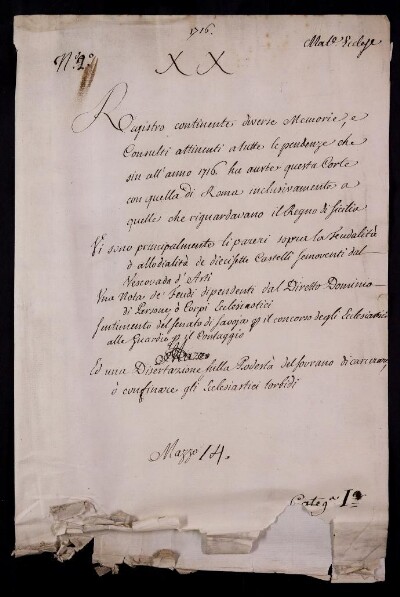 1716.
Mat.e Eccles.e
N.o 2.o
XX
Registro continente diverse Memorie, e
Consulti attinenti a tutte le pendenze che
sin all'anno 1716. ha avute questa Corte
con quella di Roma inclusivamente a
quelle che riguardavano il Regno di Sicilia
Vi sono principalmente li pareri sopra la feudalità
ò allodialità de diecisette Castelli semoventi dal
Vescovado d'Asti
Una Nota de' feudi dipendenti dal Diretto Dominio
di Persone, ò Corpi Eclesiastici
sentimento del senato di Savoja p il concorso degli Eclesiastici
alle Guardie p il Contaggio
Ed una Disertazione sulla Podestà del sovrano di carcerare,
ò confinare gli Eclesiastici torbidi
Mazzo 14.
Categ.a I.a